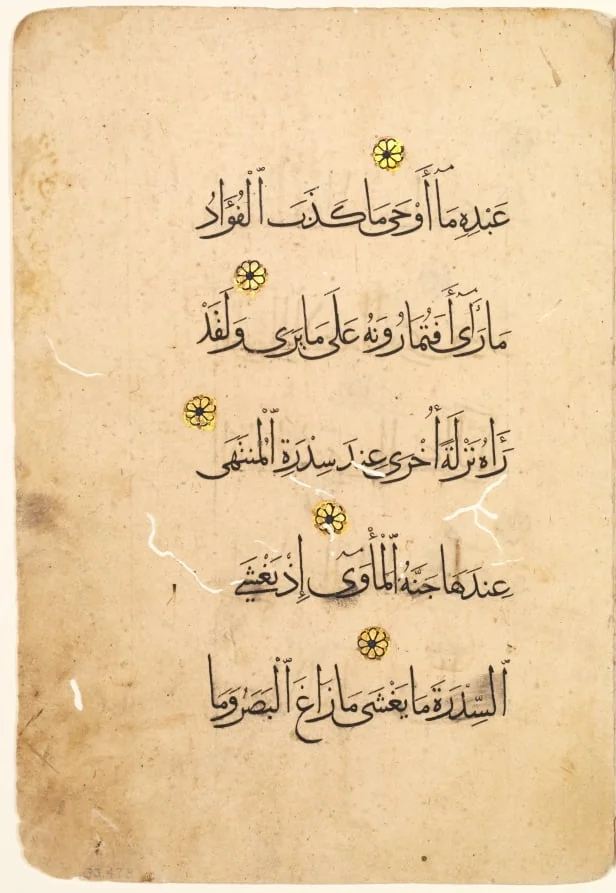 عَبْدِهِ مَآ أَوْحَى مَا كَذَبَ ٱلْفُؤَادُ
مَا رَأَى أَفَتُمَارُونَهُ عَلَى مَا يَرَى وَلَقَدْ
رَءَاهُ نَزْلَةً أُخْرَى عِندَ سِدْرَةِ ٱلْمُنتَهَى
عِندَهَا جَنَّةُ ٱلْمَأْوَى إِذْ يَغْشَى
ٱلسِّدْرَةَ مَا يَغْشَى مَا زَاغَ ٱلْبَصَرُ وَمَا